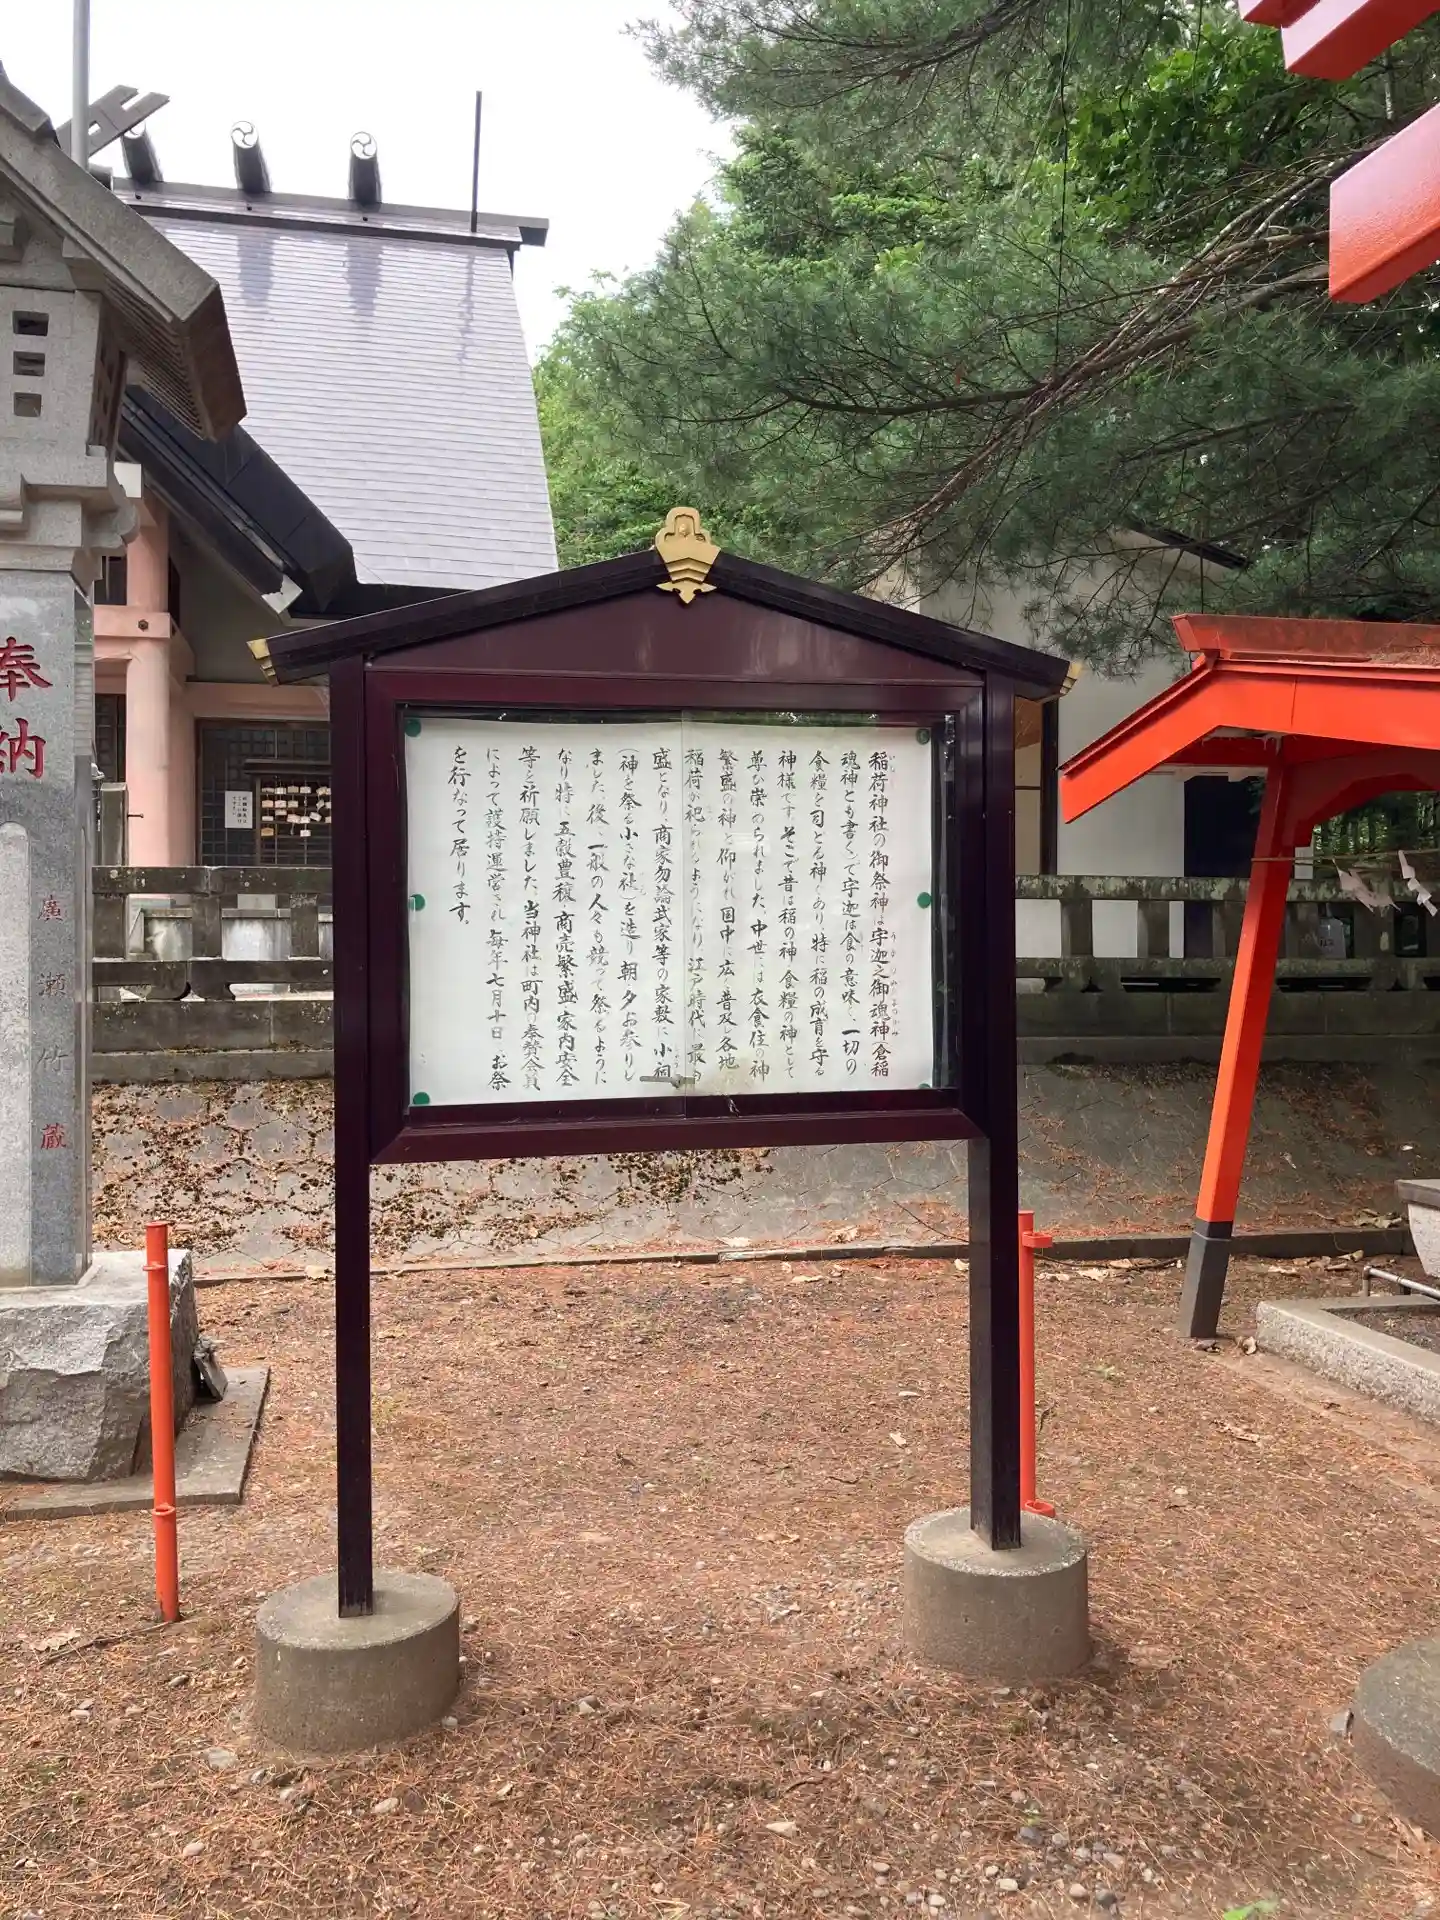 稲荷神社の御祭神は宇迦之御魂神(倉稲
魂神とも書く)で宇迦は食の意味で、一切の
食糧を司どる神であり、特に稲の成育を守る
神様です。そこで昔は稲の神、食糧の神として
尊び崇められました。中世には衣食住の神
繁盛の神と仰がれ、国中に広く普及、各地に
稲荷が祀られるようになり、江戸時代に最も
盛となり、商家勿論武家等の家敷に小祠
(神を祭る小さな社)を造り、朝、夕お参りし
ました。後に一般の人々も競って祭るように
なり特に五穀豊穣、商売繁盛、家内安全
等を祈願しました。当神社は町内の奉賛会員
によって護持運営され、毎年七月十日 お祭
を行なって居ります。
奉納
廣瀬竹蔵